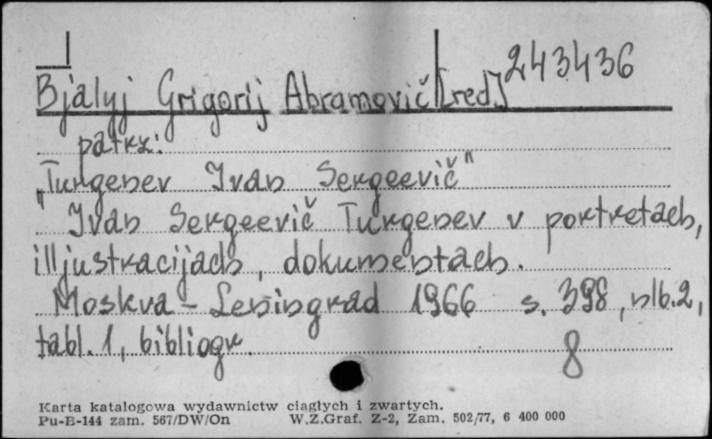 Bjalyj Grigorij Abramovič [red.] 243436
patrz:
„Turgenev Ivan Sergeevič"
Ivan Sergeevič Turgenev v portretach,
illjustracijach, dokumentach.
Moskva - Leningrad 1966 s. 398, nlb. 2,
tabl. 1, bibliogr. 8
Karta katalogowa wydawnictw ciągłych i zwartych.
Pu-B-144 zam. 567/DW/On W.Z.Graf. Z-2, Zam. 502/77, 6 400 000